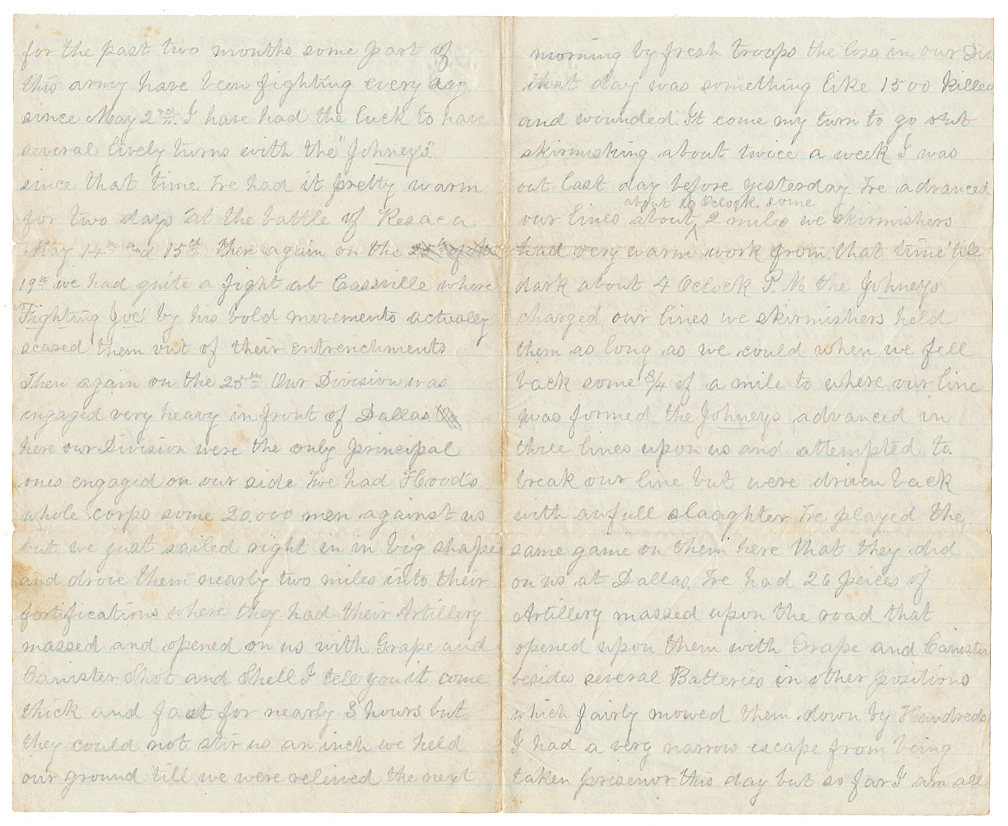 for the past two months some part of
this army have been fighting every day
since May 2nd. I have had the luck to have
several lively turns with the "Johneys"
since that time We had it pretty warm
for two days at the battle of Resaca
May 14th and 15th then again on the 25th of the
19th we had quite a fight at Cassville where
"Fighting Joe" by his bold movements actually
scased them out of their entrenchments
Then again on the 25th Our Division was
engaged very heavy in front of Dallas
here our Division were the only principal
ones engaged on our side We had Hood's
whole corps some 20,000 men against us
but we just sailed right in in big shape
and drove them nearly two miles into their
fortifications where they had their Artillery
massed and opened on us with Grape and
Canister Shot and Shell I tell you it come
thick and fast for nearly 3 hours but
they could not stir us an inch we held
our ground till we were releived the next
morning by fresh troops the loss in our Div
that day was something like 1500 killed
and wounded. It come my turn to go out
skirmishing about twice a week I was
out last day before yesterday We advanced
about 10 Oclock some
our lines about 2 miles we skirmishers
had very warm work from that time till
dark about 4 Oclock P.M. the Johneys
charged our lines we skirmishers held
them as long as we could when we fell
back some 3/4 of a mile to where our line
was formed the Johneys advanced in
three lines upon us and attempted to
break our line but were driven back
with anfull slaughter We played the
same game on them here that they did
on us at Dallas We had 26 peices of
Artillery massed upon the road that
opened upon them with Grape and Canister
besides several Batteries in other positions
which fairly mowed them down by Hundreds
I had a very narrow escape from being
taken prisenor this day but so far I am all